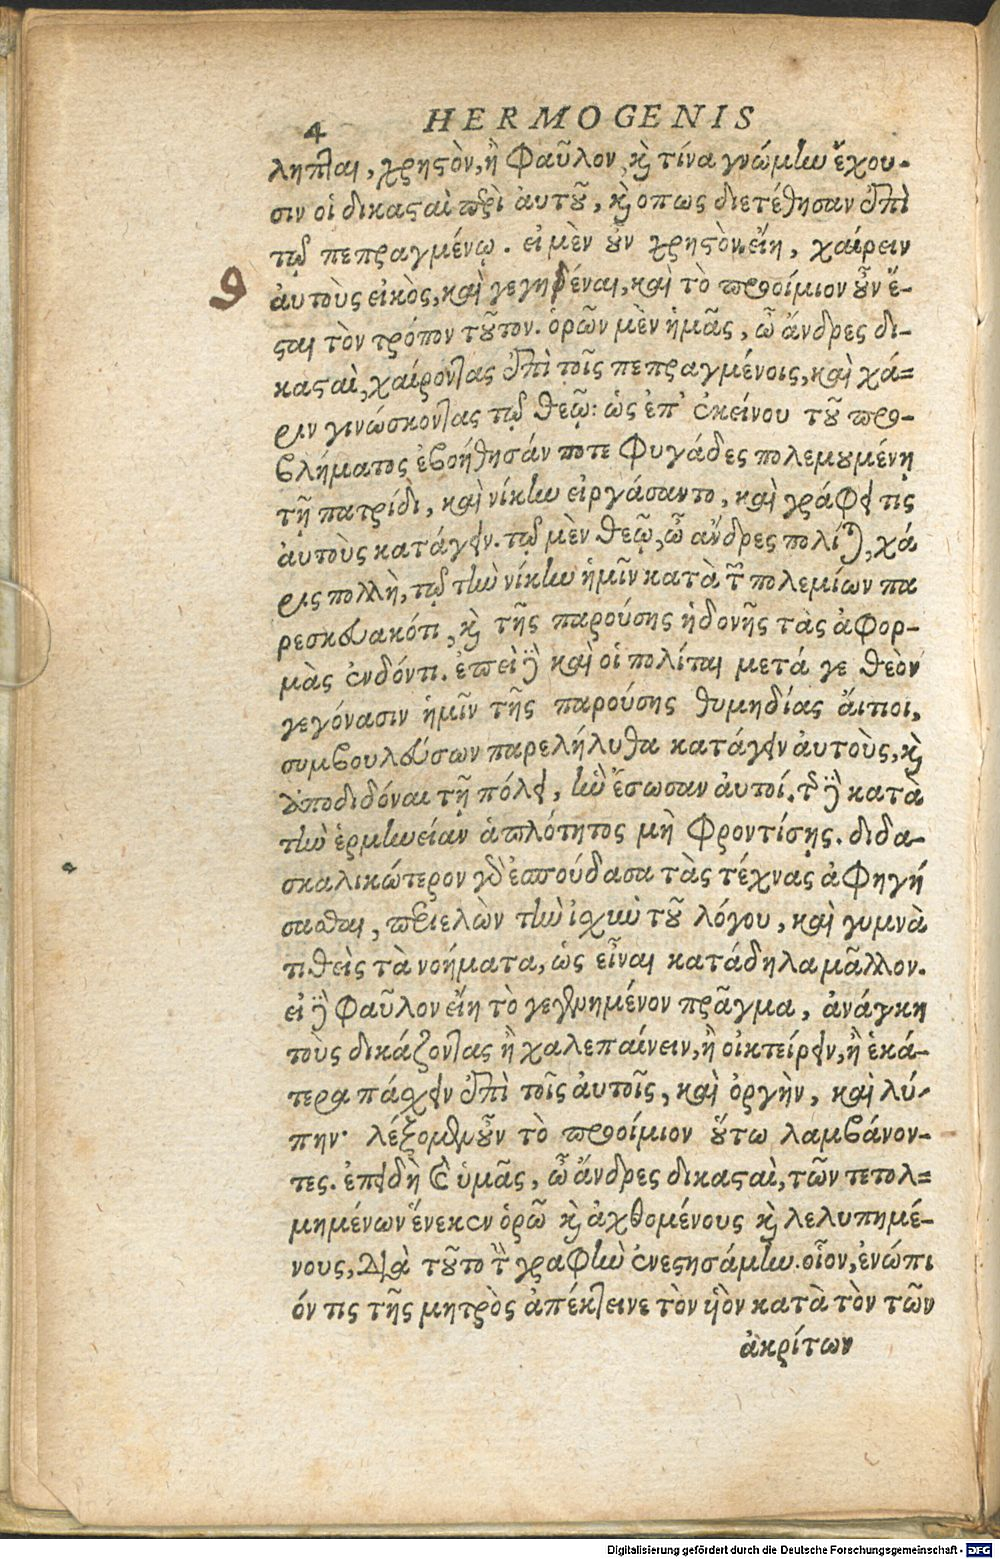 4 HERMOGENIS
ληπται, χρηστὸν, ἢ φαῦλον, καὶ τίνα γνώμην ἔχου-
σιν οἱ δικασταὶ περὶ αὐτοῦ, καὶ οπως διετέθησαν ἐπὶ
τῷ πεπραγμένῳ. εἰ μὲν οὖν χρηστὸν εἴη, χαίρειν
ἀυτοὺς εἰκὸς, καὶ γεγηθέναι, καὶ τὸ προοίμιον οὖν ἔ-
9
σται τὸν τρόπον τοῦτον. ὁρῶν μὲν ἡμᾶς, ὦ ἄνδρες δι-
κασταὶ, χαίροντας ἐπὶ τοῖς πεπραγμένοις, καὶ χά=
ριν γινώσκοντας τῷ θεῷ: ὡς ἐπ' ἐκείνου τοῦ προ-
βλήματος ἐβοήθησάν ποτε φυγάδες πολεμουμένῃ
τῇ πατρίδι, καὶ νίκην εἰργάσαντο, καὶ γράφει τις
ἀυτοὺς κατάγειν. τῷ μὲν θεῷ, ὦ ἄνδρες πολίται, χά
ρις πολλὴ, τῷ τὴν νίκην ἡμῖν κατὰ τῶν πολεμίων πα
ρεσκευακότι, καὶ τῆς παρούσης ἡδονῆς τὰς ἀφορ-
μὰς ἐνδόντι. ἐπεὶ δὲ καὶ οἱ πολίται μετά γε θεὸν
γεγόνασιν ἡμῖν τῆς παρούσης θυμηδίας ἄιτιοι,
συμβουλεύσων παρελήλυθα κατάγειν ἀυτοὺς, καὶ
ἀποδιδόναι τῇ πόλει, ἣν ἔσωσαν ἀυτοί. τῆς δὲ κατὰ
τὴν ἑρμηνείαν ἁπλότητος μὴ φροντίσῃς. διδα-
σκαλικώτερον γὰρ ἐσπούδασα τὰς τέχνας ἀφηγή
σασθαι, περιελὼν τὴν ἰσχὺν τοῦ λόγου, καὶ γυμνὰ
τιθεὶς τὰ νοήματα, ὡς εἶναι κατάδηλα μᾶλλον.
εἰ δὲ φαῦλον εἴη τὸ γεγενημένον πρᾶγμα, ἀνάγκη
τοὺς δικάζοντας ἢ χαλεπαίνειν, ἢ οἰκτείρειν, ἢ ἑκά-
τερα πάσχειν ἐπὶ τοῖς ἀυτοῖς, καὶ ὀργὴν, καὶ λύ-
πην· λέξομεν οὖν τὸ προοίμιον οὕτω λαμβάνον-
τες. ἐπειδὴ καὶ ὑμᾶς, ὦ ἄνδρες δικασταὶ, τῶν τετολ=
μημένων ἕνεκεν ὁρῶ καὶ ἀχθομένους καὶ λελυπημέ-
νους, διὰ τοῦτο τὴν γραφὴν ἐνεστησάμην. οἷον, ἐνώπι
όν τις τῆς μητρὸς ἀπέκτεινε τὸν υἱὸν κατὰ τὸν τῶν
ἀκρίτων
Digitalisierung gefördert durch die Deutsche Forschungsgemeinschaft - DFG